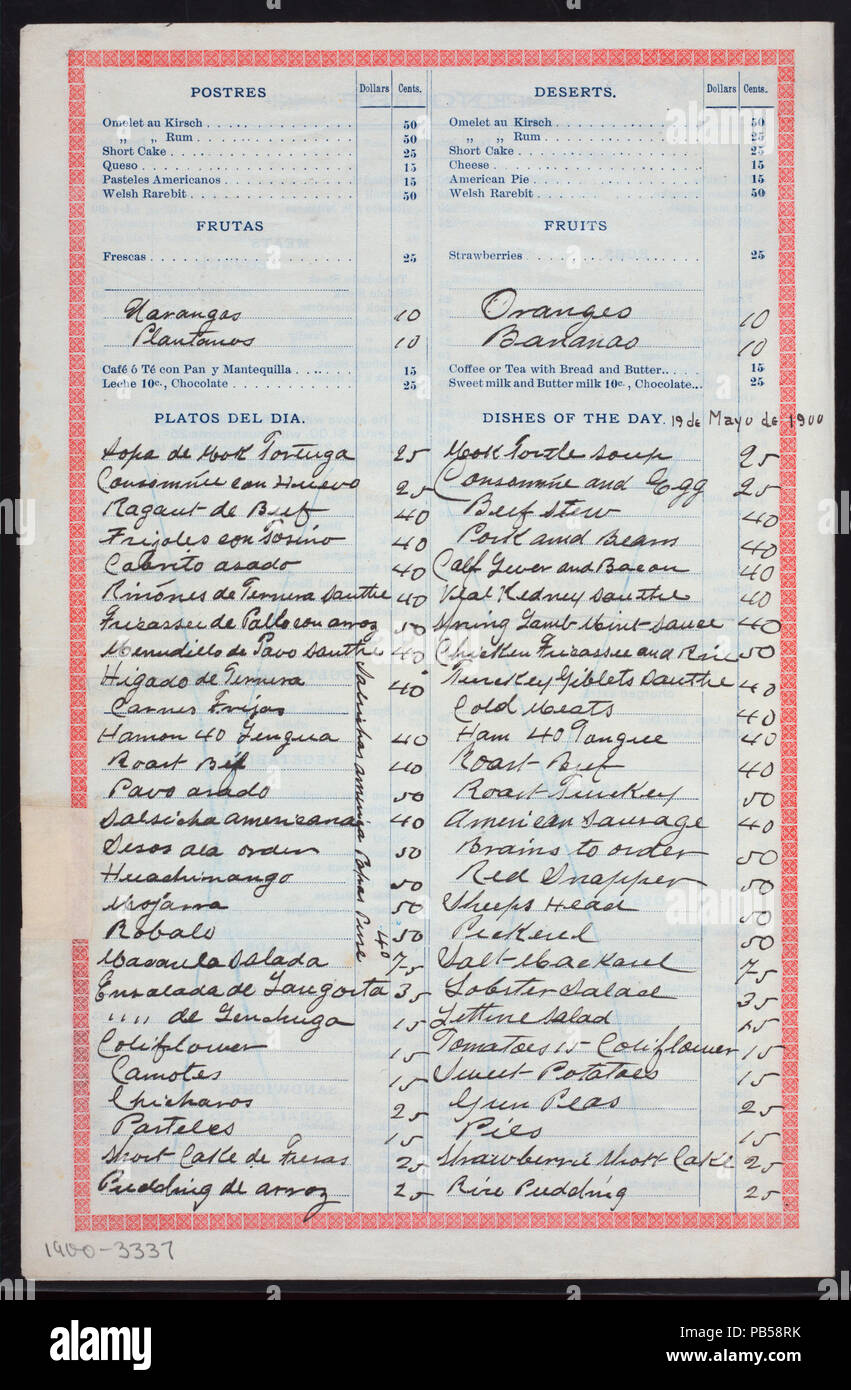 POSTRES Dollars Cents.
Omelet au Kirsch 50
„ „ Rum 50
Short Cake 25
Queso 15
Pasteles Americanos 15
Welsh Rarebit 50
FRUTAS
Frescas 25
Naranjas 10
Plantanos 10
Café ó Té con Pan y Mantequilla 15
Leche 10c., Chocolate 25
PLATOS DEL DIA.
Sopa de Mok Tortuga 25
Consommée con Huevo 25
Ragaut de Beef 40
Frijoles con Tosino 40
Cabrito asado 40
Riñones de Ternera Sauthe 40
Fricassee de Pollo con arroz 50
Menudillo de Pavo Sauthe 40
Higado de Ternera 40
Carnes Frijas
Hamon 40 Lengua 40
Roast Beef 40
Pavo asado 50
Salsicha americana 40
Sesos ala orden 50
Huachinango 50
Mojarra 50
Robalo 50
Macarela Salada 75
Ensalada de Langosta 35
" " de Lechuga 15
Coliflower 15
Camotes 15
Chicharos 25
Pasteles 15
Short Cake de Fresas 25
Pudding de arroz 25
Salsichas america Papas Pure 40
DESERTS. Dollars Cents.
Omelet au Kirsch 50
„ „ Rum 25
Short Cake 25
Cheese 15
American Pie 15
Welsh Rarebit 50
FRUITS
Strawberries 25
Oranges 10
Bananas 10
Coffee or Tea with Bread and Butter 15
Sweet milk and Butter milk 10c., Chocolate 25
DISHES OF THE DAY. 19 de Mayo de 1900
Mok Tortle Soup 25
Consommée and Egg 25
Beef Stew 40
Pork and Beans 40
Calf Lever and Bacon 40
Veal Kedney Sauthe 40
Spring Lamb Mint Sauce 40
Chicken Fricassee and Rice 50
Turckey Giblets Sauthe 40
Cold Meats 40
Ham 40 Tongue 40
Roast Beef 40
Roast Turckey 50
American Sausage 40
Brains to order 50
Red Snapper 50
Sheeps Head 50
Pickerel 50
Salt Mackarel 75
Lobster Salad 35
Lettuce Salad 15
Tomatoes 15 Coliflower 15
Sweet Potatoes 15
Green Peas 25
Pies 15
Strawberrie Short Cake 25
Rice Pudding 25
1900-3337
alamy
Image ID: PB58RK
www.alamy.com